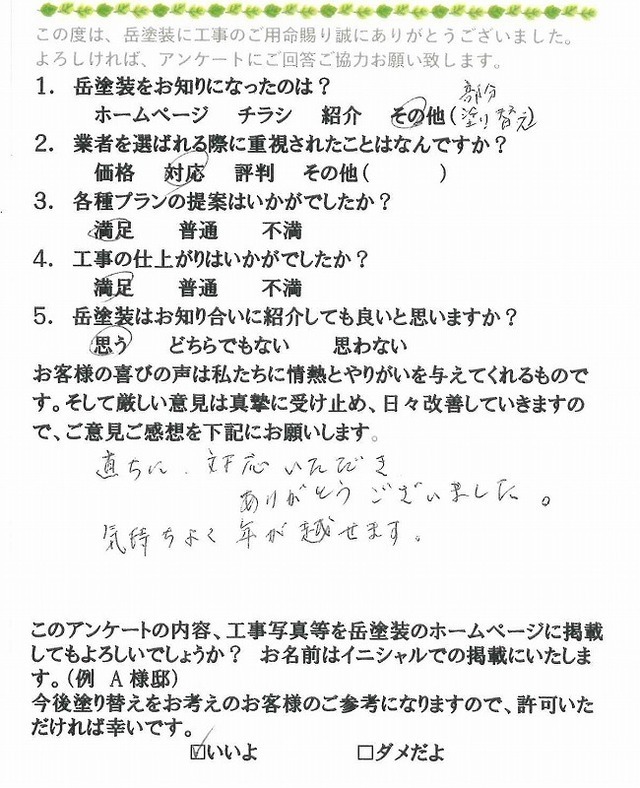 この度は、岳塗装に工事のご用命賜り誠にありがとうございました。
よろしければ、アンケートにご回答ご協力お願い致します。
1. 岳塗装をお知りになったのは？
ホームページ チラシ 紹介 その他(部分塗り替え)
2. 業者を選ばれる際に重視されたことはなんですか？
価格 対応 評判 その他( )
3. 各種プランの提案はいかがでしたか？
満足 普通 不満
4. 工事の仕上がりはいかがでしたか？
満足 普通 不満
5. 岳塗装はお知り合いに紹介しても良いと思いますか？
思う どちらでもない 思わない
お客様の喜びの声は私たちに情熱とやりがいを与えてくれるもので
す。そして厳しい意見は真摯に受け止め、日々改善していきますの
で、ご意見ご感想を下記にお願いします。
直ちに、対応いただき
ありがとうございました。
気持ちよく年が越せます。
このアンケートの内容、工事写真等を岳塗装のホームページに掲載
してもよろしいでしょうか？ お名前はイニシャルでの掲載にいたしま
す。(例 A様邸)
今後塗り替えをお考えのお客様のご参考になりますので、許可いた
だければ幸いです。
☑いいよ □ダメだよ